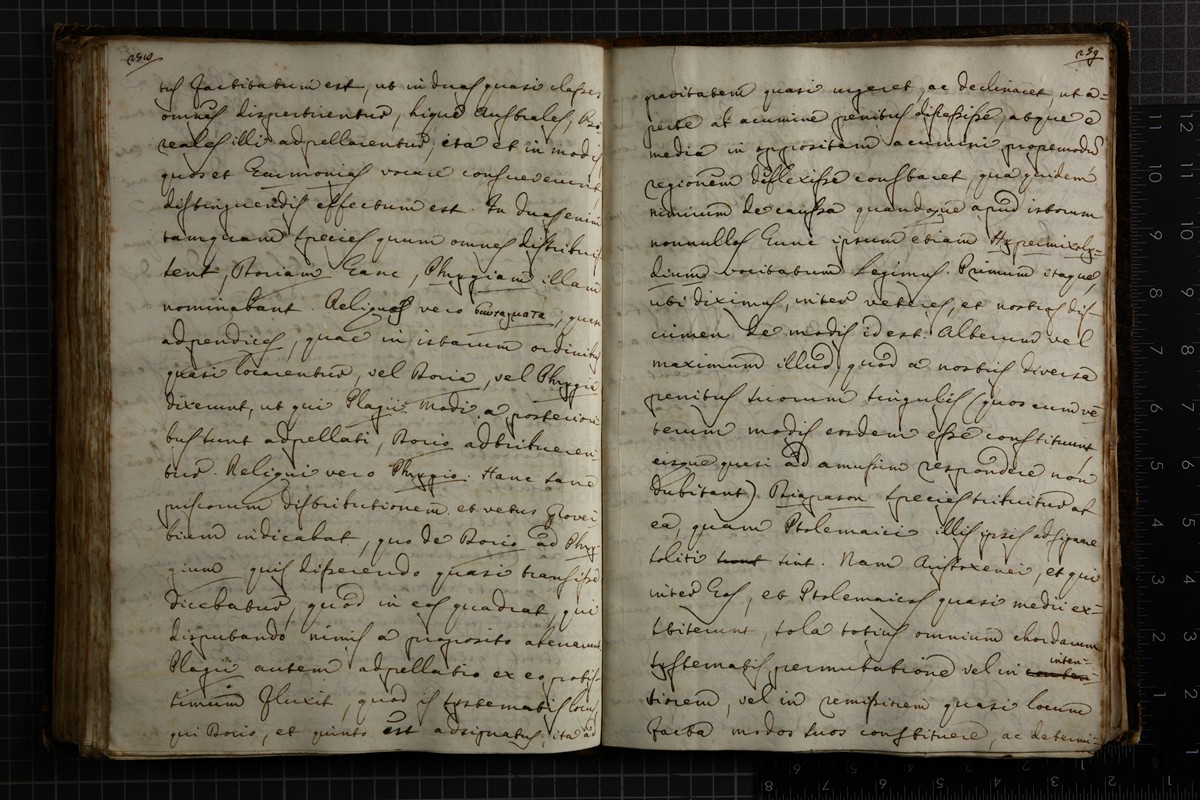 258
tis factitatum est, ut in duas quasi classes
omnes dispertirentur, hique Australes, Bo-
reales illi adpellarentur, ita et in modis
quos et Harmonias vocare consueverunt
distinguendis effectum est. In duas enim
tamquam species quum omnes distribuis-
sent, Doriam hanc, Phrygiam illam
nominabant. Reliquas vero συνταγματα, quasi
adpendices, quae in istarum ordinibus
quasi locarentur, vel Doria, vel Phrygia
dixerunt, ut qui Plagii modi a posteriori-
bus sunt adpellati, Dorio adtribueren-
tur. Reliqui vero Phrygio. Hanc sane
priscorum distributionem et vetus prover-
bium indicabat, quo de Dorio ad Phry-
gium quis disserendo quasi transisse
dicebatur, quod in eos quadrat, qui
disputando nimis a proposito aberrant
Plagii autem adpellatio ex eo potis-
simum fluxit, quod is systematis locus
qui Dorio, et quinto est adsignatus, ita ad
259
gravitatem quasi vergeret, ac declinaret, ut a-
perte ab acumine penitus discessisse, atque e
media in oppositam acumini propemodum
regionem deflexisse constaret, qua quidem
nimirum de caussa quandoque apud istorum
nonnullos hunc ipsum etiam Hypermixoly-
dium vocitatum legimus. Primum itaque,
ubi diximus, inter veteres, et nostros dis-
crimen de modis id est. Alterum vel
maximum illud, quod a nostris diversa
penitus suorum singulis (quos cum ve-
terum modis eosdem esse constituunt
eisque quasi ad amussim respondere non
dubitant) Diapason species tribuitur ab
ea, quam Ptolemaici illis ipsis adsignare
soliti sunt sint. Nam Aristoxenei, et qui
inter hos, et Ptolemaicos quasi medii ex-
stiterunt, sola totius omnium chordarum
systematis permutatione vel in inten-
tiorem, vel in remissiorem quasi locum
facta modos suos constituere, ac determi-